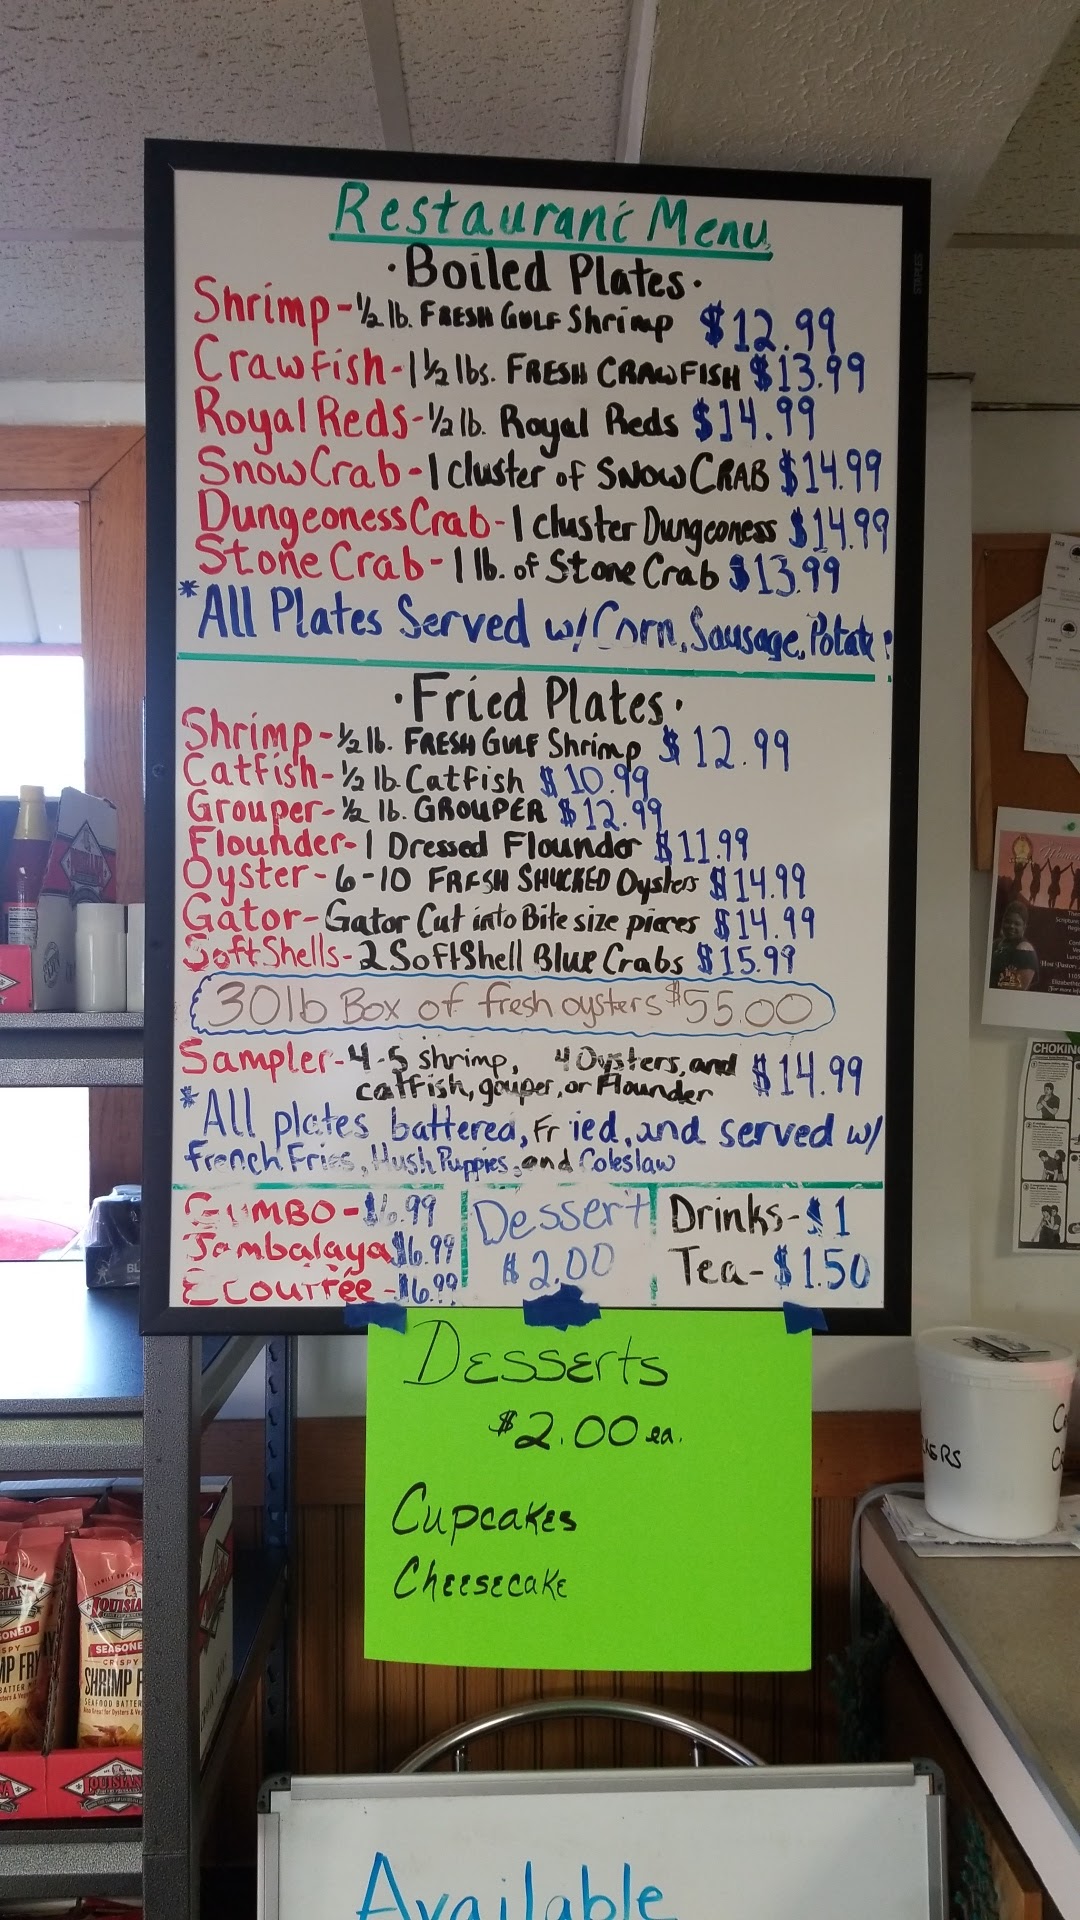 Restaurant Menu
· Boiled Plates ·
Shrimp - 1/2 lb. FRESH GULF Shrimp $12.99
Crawfish - 1 1/2 lbs. FRESH CRAWFISH $13.99
Royal Reds - 1/2 lb. Royal Reds $14.99
Snow Crab - 1 cluster of SNOW CRAB $14.99
Dungeoness Crab - 1 cluster Dungeoness $14.99
Stone Crab - 1 lb. of Stone Crab $13.99
*All Plates Served w/ Corn, Sausage, Potato
· Fried Plates ·
Shrimp - 1/2 lb. FRESH GULF Shrimp $12.99
Catfish - 1/2 lb. Catfish $10.99
Grouper - 1/2 lb. GROUPER $12.99
Flounder - 1 Dressed Flounder $11.99
Oyster - 6-10 FRESH SHUCKED Oysters $14.99
Gator - Gator Cut into Bite size pieces $14.99
Soft Shells - 2 Soft Shell Blue Crabs $15.99
30 lb Box of fresh oysters $55.00
Sampler - 4-5 shrimp, 4 Oysters, and $14.99
catfish, gouper, or Flounder
*All plates battered, Fried, and served w/
french Fries, Hush Puppies, and Coleslaw
GUMBO - $6.99
Jambalaya $6.99
Ecouffée - $6.99
Dessert
$2.00
Drinks - $1
Tea - $1.50
Desserts
$2.00 ea.
Cupcakes
Cheesecake
Available
STAPLES
CHOKING
SEASONED
CRISPY
SHRIMP FRY
SEAFOOD BATTER